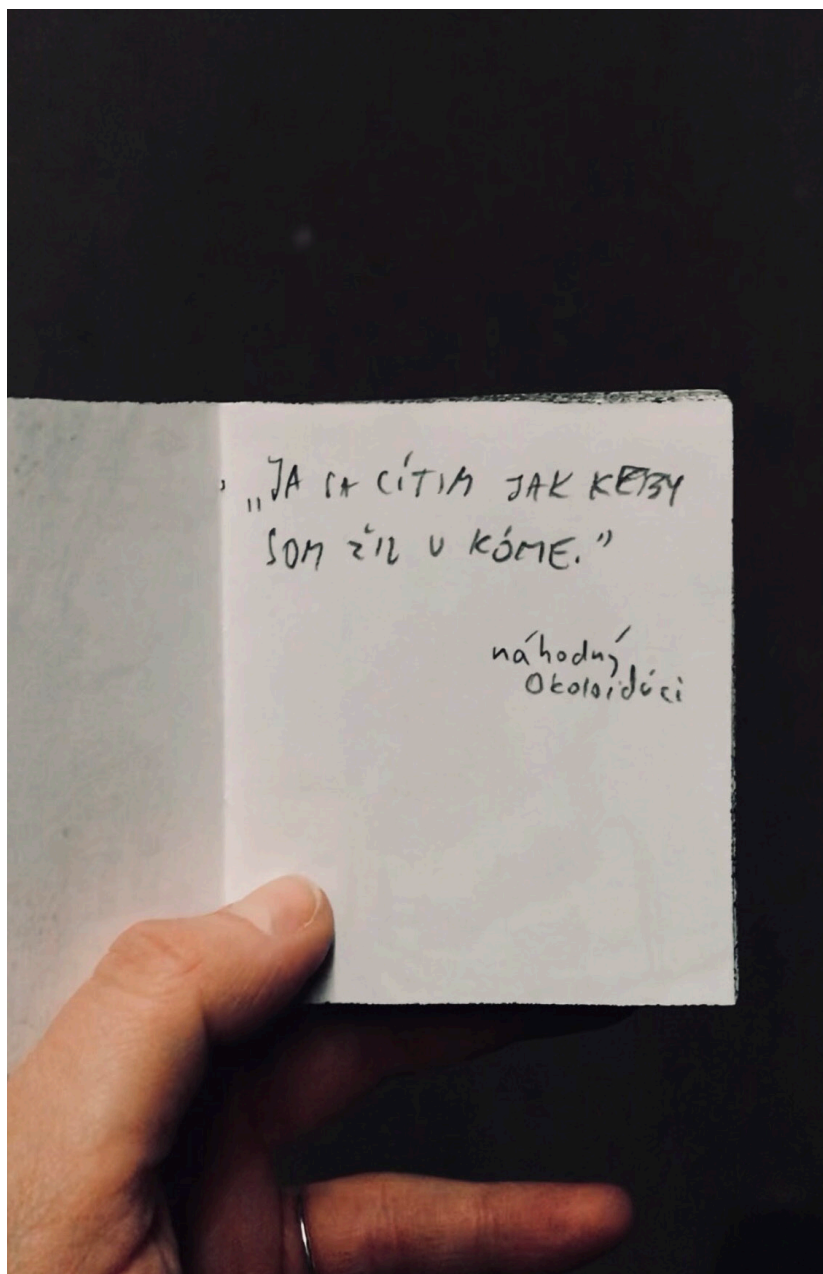 „JA SA CÍTIM JAK KEBY
SOM ŽIL V KÓME.”
náhodný
Okoloidúci